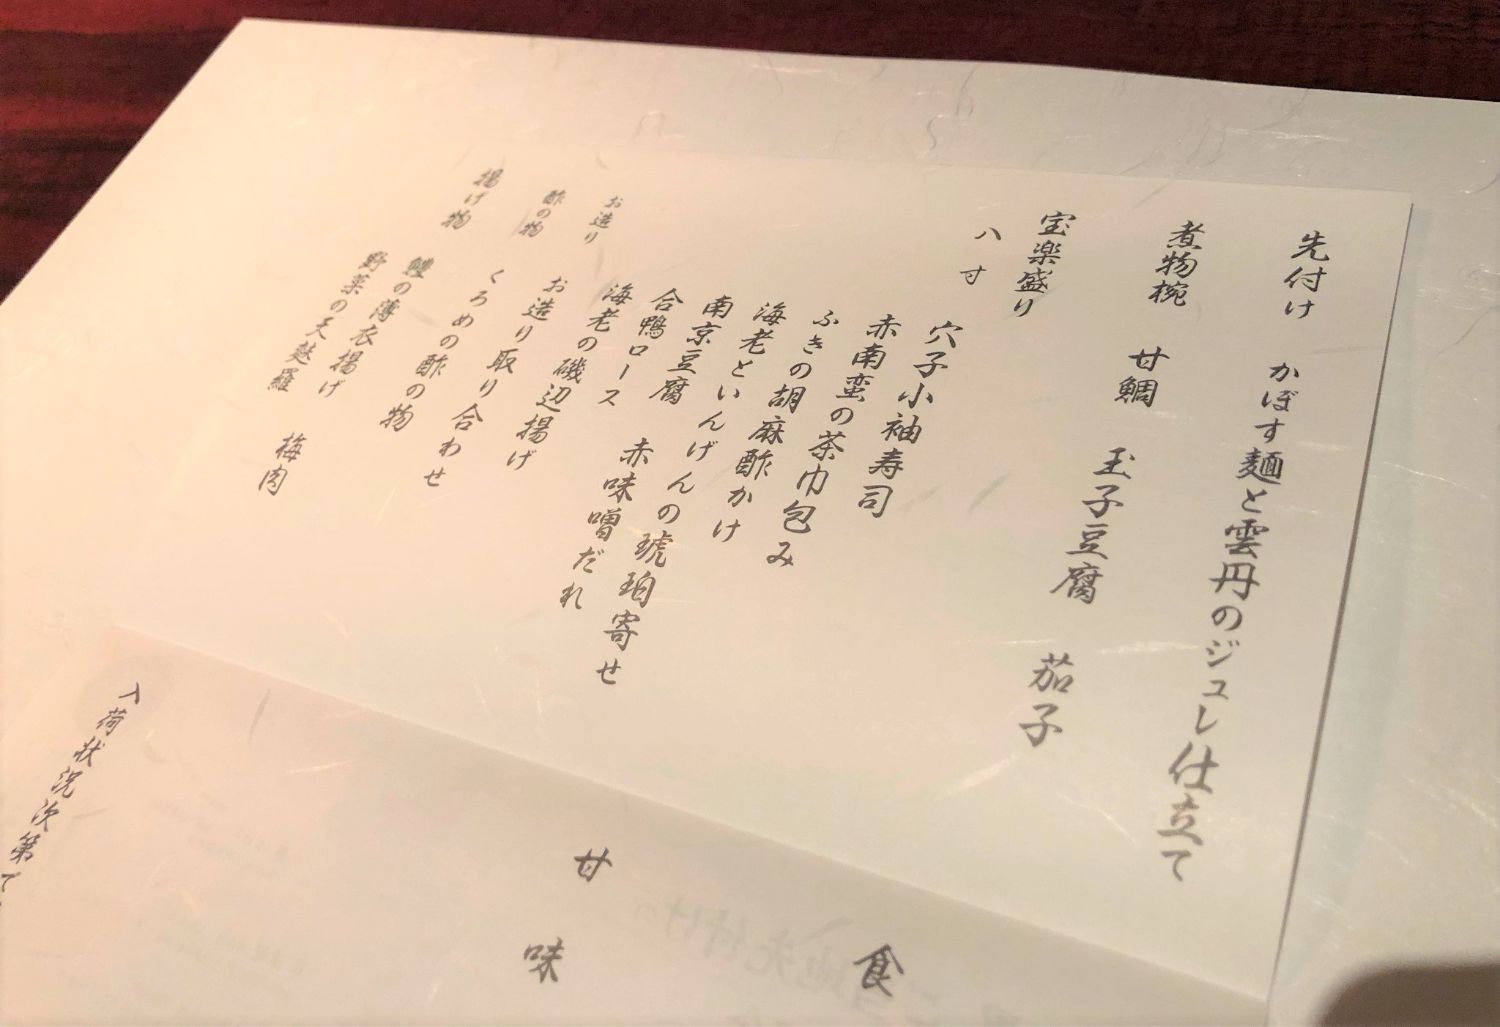 先付け　かぼす麺と雲丹のジュレ仕立て
煮物椀　甘鯛　玉子豆腐　茄子
宝楽盛り
八寸
穴子小袖寿司
赤南蛮の茶巾包み
ふきの胡麻酢かけ
海老といんげんの琥珀寄せ
南京豆腐　赤味噌だれ
合鴨ロース
海老の磯辺揚げ
お造り　お造り取り合わせ
酢の物　くろめの酢の物
揚げ物　鱧の薄衣揚げ
野菜の天麩羅　梅肉
食
甘味
入荷状況次第で